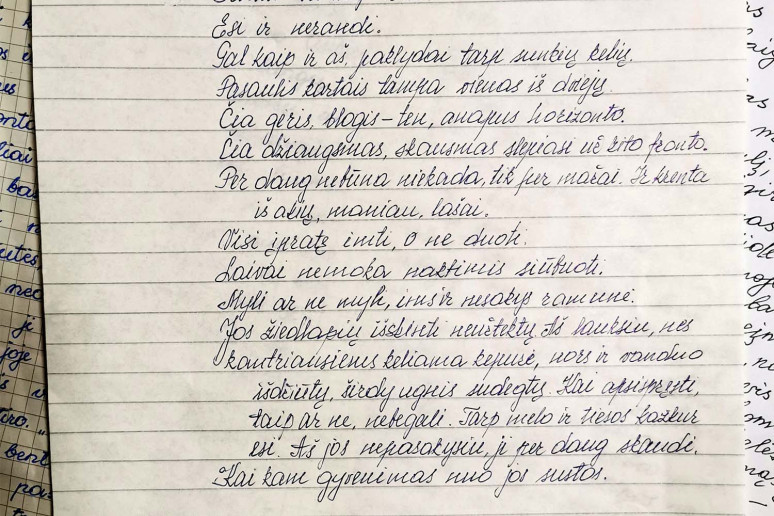 Esi ir nerandi.
Gal kaip ir aš, paklydai tarp sunkių kelių.
Pasaulis kartais tampa vienas iš dviejų
Čia gėris, blogis - ten, anapus horizonto.
Čia džiaugsmas, skausmas slepiasi už kito fronto.
Per daug nebūna niekada, tik per mažai. Ir krenta
iš akių, maniau, lašai.
Visi įpratę imti, o ne duoti.
Laivai nemoka naktimis siūbuoti.
Myli ar ne myli, imsir nesakys ramunė.
Jos žiedlapių išskinti neužtektų. Aš lauksiu, nes
kantriausiems keliama kepurė, nors ir vanduo
išdžiūtų, širdy ugnis sudegtų. Kai apsispręsti,
taip ar ne, nebegali. Tarp melo ir tiesos kažkur
esi. Aš jos nepasakysiu, ji per daug skaudi.
Kai kam gyvenimas nuo jos sustos.